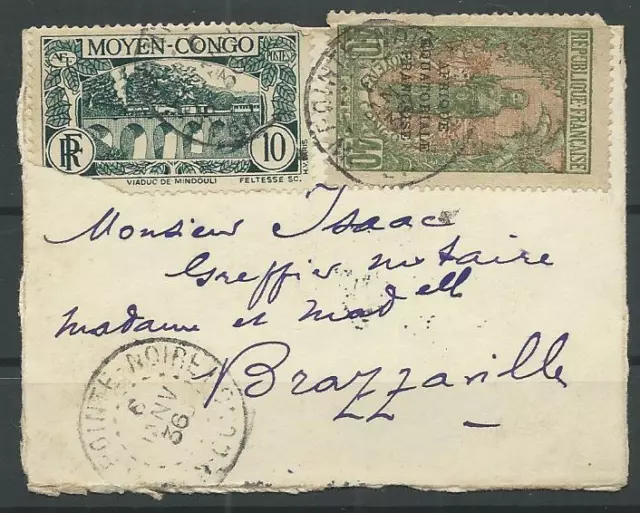 MOYEN-CONGO
POSTES
RF
10
VIADUC DE MINDOULI
FELTESSE SC.
RÉPUBLIQUE FRANÇAISE
AFRIQUE
ÉQUATORIALE
FRANÇAISE
40
40
Monsieur Isaac
Greffier notaire
madame et madell
Brazzaville
POINTE-NOIRE
6
JANV
36